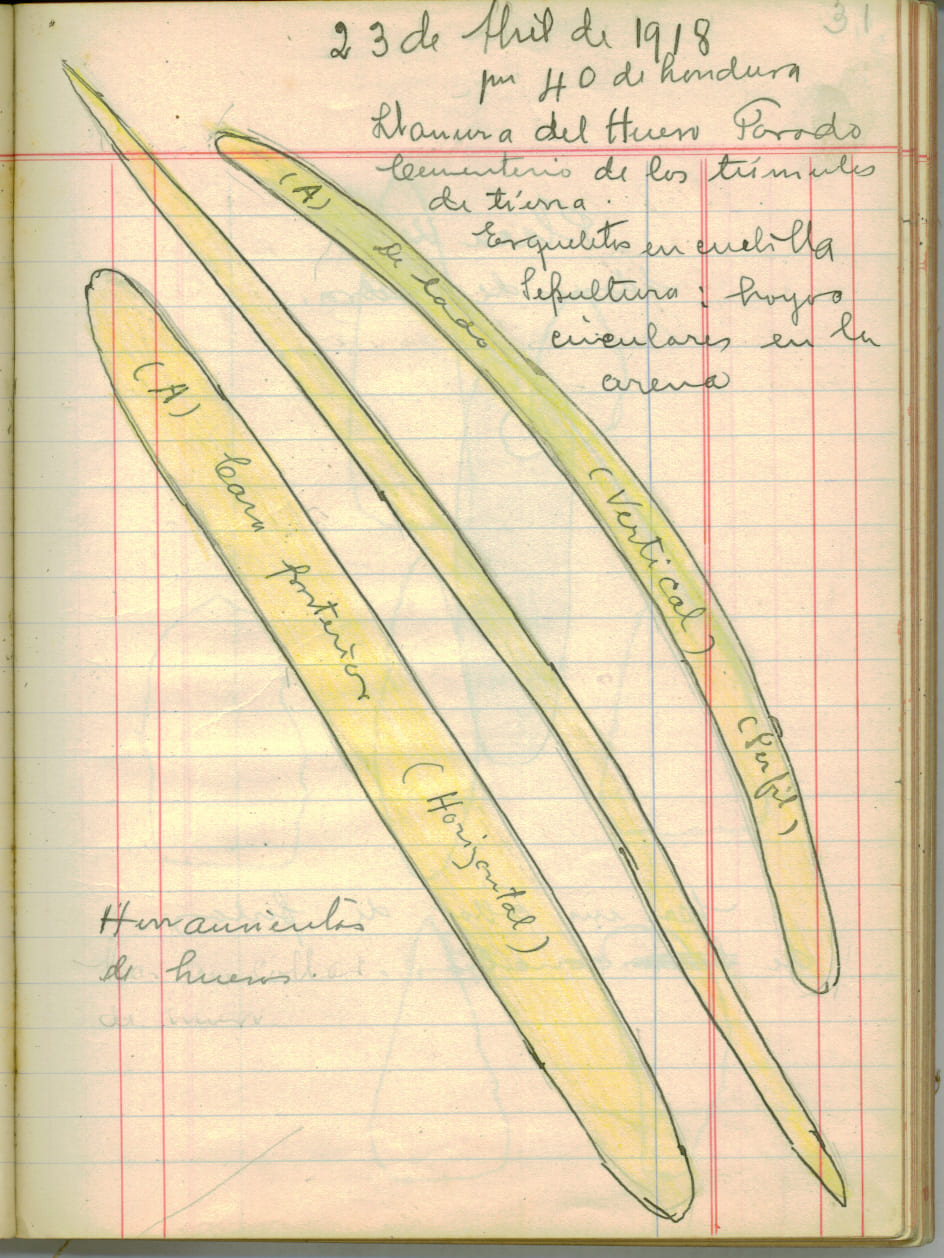 31
23 de Abril de 1918
pr 40 de hondura
Llanura del Hueso Parado
Cementerio de los túmulos
de tierra.
Esqueletos en cuclilla
Sepultura: hoyos
circulares en la
arena
(A) De lado (Vertical) (Perfil)
(A) Cara posterior (Horizontal)
Herramientas
de huesos.